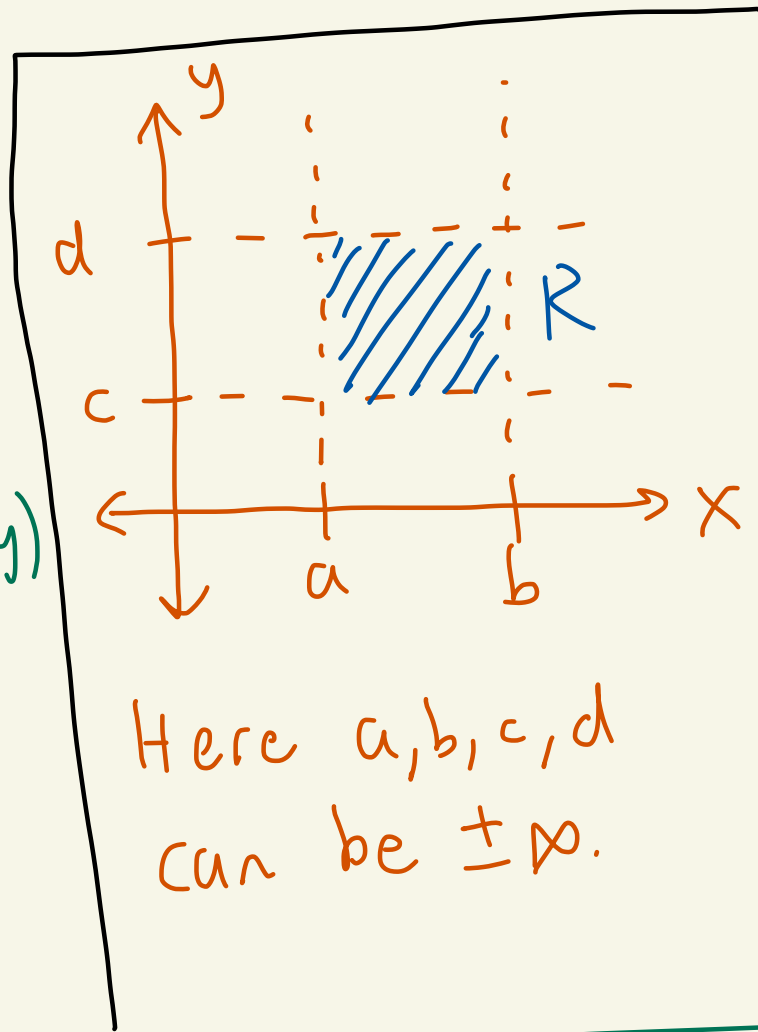 y
d
R
c
y)
x
a
b
Here a,b,c,d
can be ± ∞.